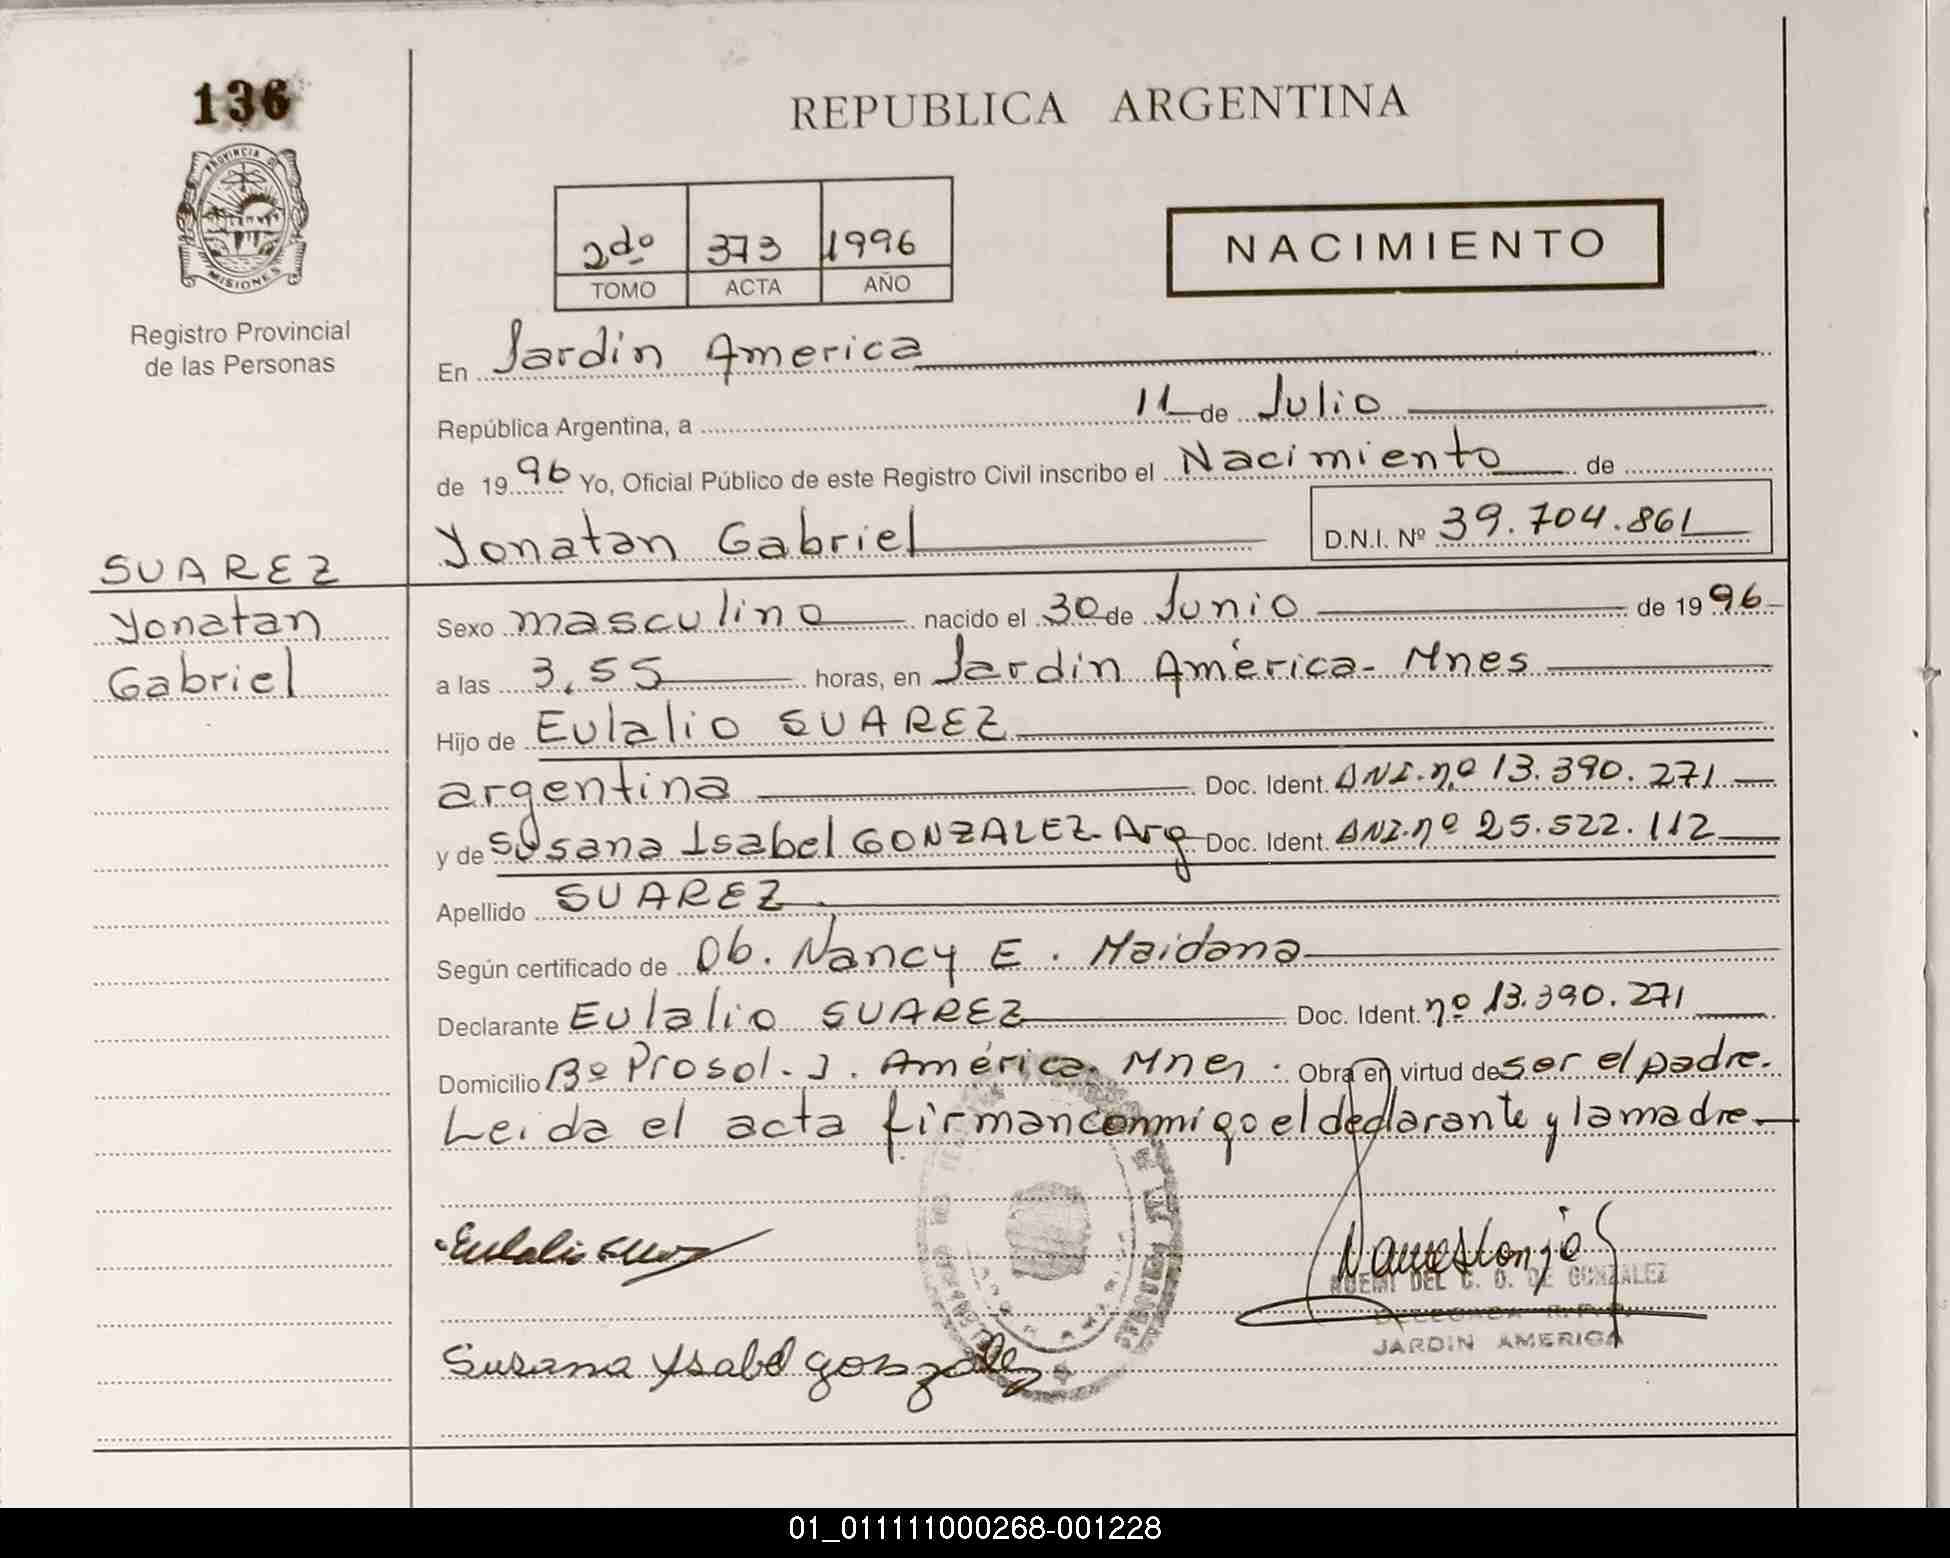 136
REPUBLICA ARGENTINA
PROVINCIA DE MISIONES
Registro Provincial
de las Personas
2do 373 1996
TOMO ACTA AÑO
NACIMIENTO
En Jardin America
República Argentina, a 11 de Julio
de 1996 Yo, Oficial Público de este Registro Civil inscribo el Nacimiento de
Yonatan Gabriel D.N.I. Nº 39.704.861
SUAREZ
Yonatan
Gabriel
Sexo masculino nacido el 30 de Junio de 1996
a las 3,55 horas, en Jardin América- Mnes
Hijo de Eulalio SUAREZ
argentina Doc. Ident. DNI.nº 13.390.271
y de Susana Isabel GONZALEZ- Arg Doc. Ident. DNI.nº 25.522.112
Apellido SUAREZ
Según certificado de Ob. Nancy E. Maidana
Declarante Eulalio SUAREZ Doc. Ident. nº 13.390.271
Domicilio Bº Prosol. J. América. Mnes. Obra en virtud de ser el padre.
Leida el acta firman conmigo el declarante y la madre
Eulalio
NOEMI DEL C. O. DE GONZALEZ
JARDIN AMERICA
Susana Ysabel gonzalez
01_011111000268-001228